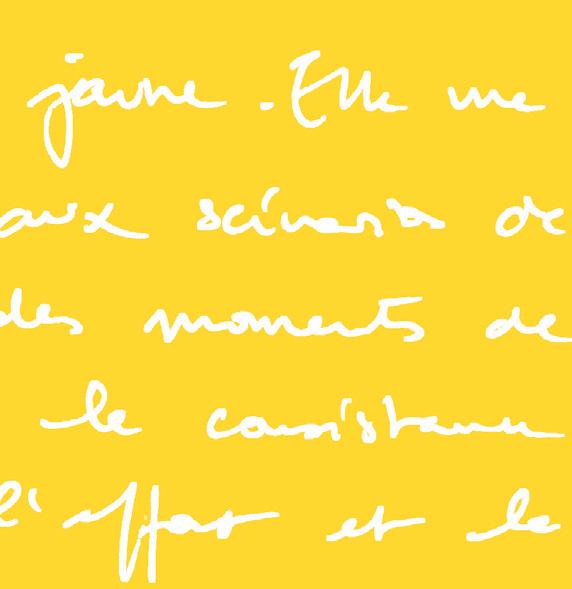 jaune. Elle me
aux scénarios de
des moments de
le consistance
l'effort et le